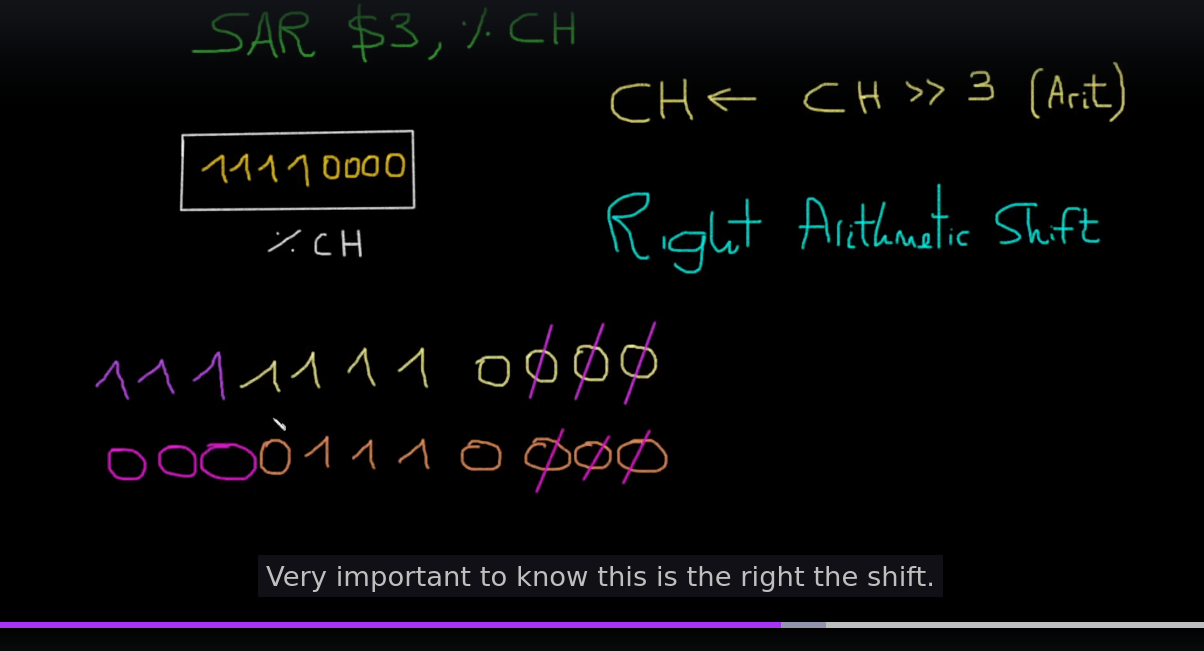 SAR $3, % CH
CH ← CH >> 3 (Arit)
11110000
% CH
Right Arithmetic Shift
111 1111 0000
000 0111 0000
Very important to know this is the right the shift.